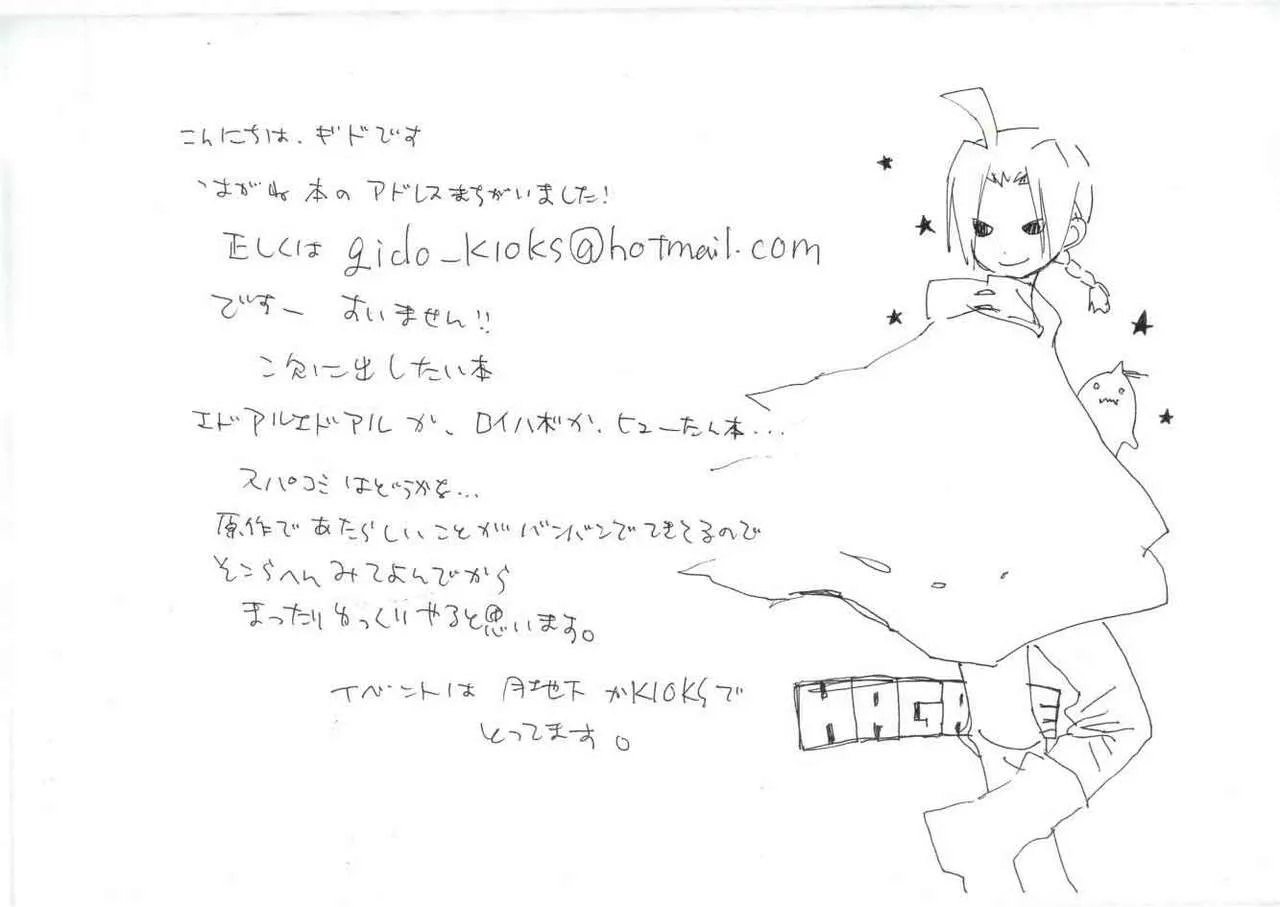 こんにちは、ギドです
はがね本のアドレスまちがいました!
正しくは gido_kioks@hotmail.com
ですー すいません!!
次に出したい本
エドアルエドアルか、ロイハボか、ヒューたん本...
スパコミはどうかな...
原作であたらしいことがバンバンでてきてるので
そこらへんみてよんでから
まったりゆっくりやると思います。
イベントは 月地下 かKIOKSで
とってます。
HAGA